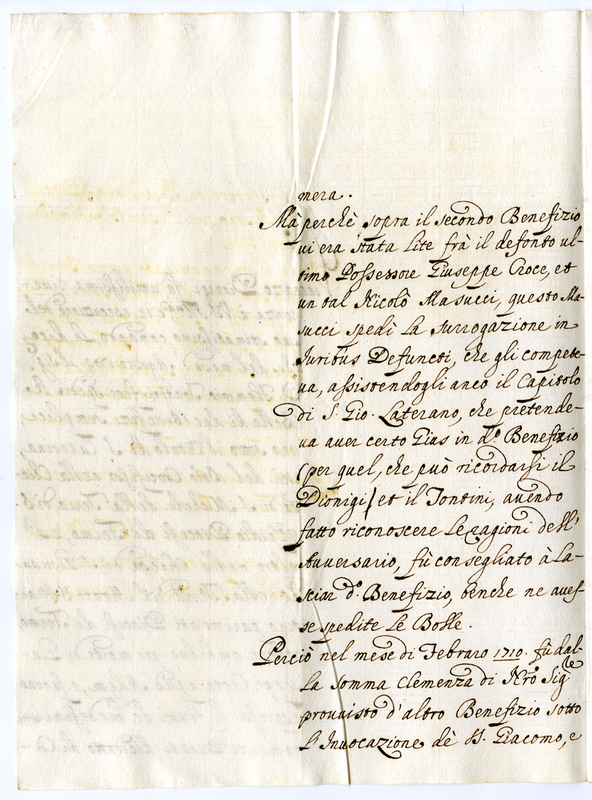 mera.
Mà perchè sopra il secondo Benefizio
vi era stata Lite frà il defonto ul-
timo Possessore Giuseppe Croce, et
un tal Nicolò Masucci, questo Ma-
succi spedì la surrogazione in
Juribus Defuncti, che gli compete-
va, assistendogli anco il Capitolo
di S. Gio. Laterano, che pretende-
va aver certo Gius in do. Benefizio
(per quel, che può ricordarsi il
Dionigi) et il Tontini, avendo
fatto riconoscere Le ragioni dell'
Avversario, fù consegliato à La-
sciar do. Benefizio, benche ne aves-
se spedite Le Bolle.
Perciò nel mese di Febraro 1710. fù dal-
La somma Clemenza di Nro Sigre
provisto d'altro Benefizio sotto
L'Invocazione dè SS. Giacomo, e